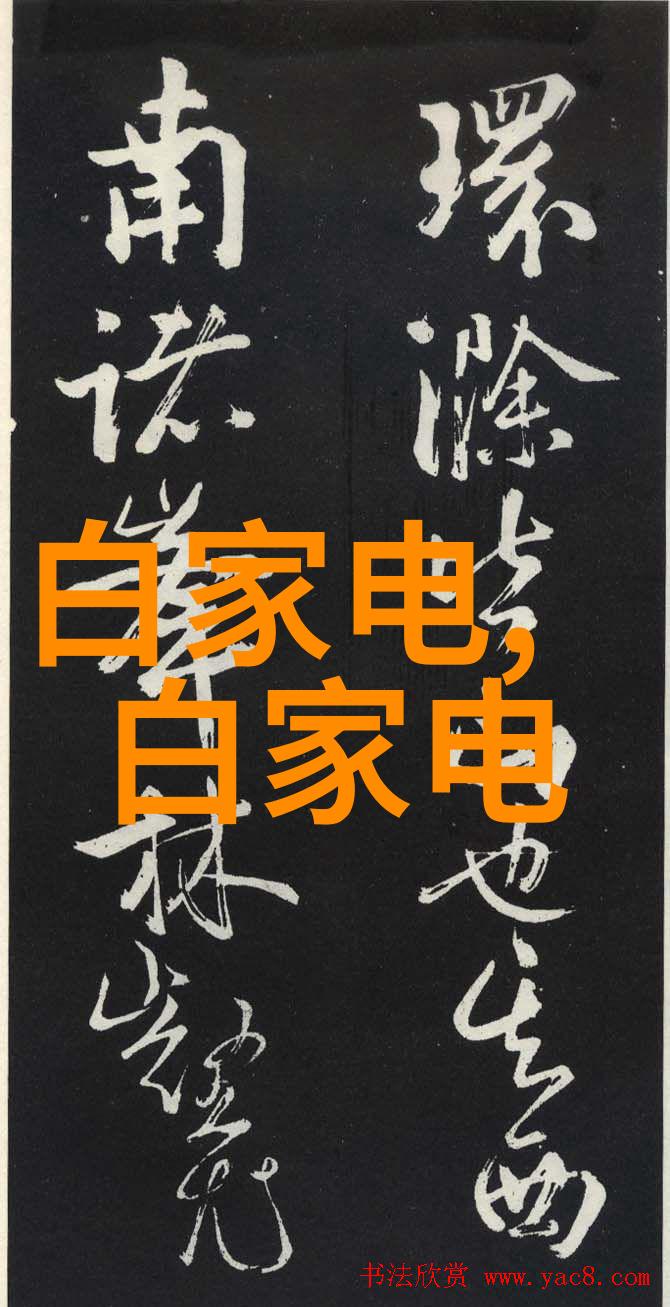 環滁皆山也其西
南諸峯林壑尤
白家电,
白家电
书法欣赏 www.yac8.com